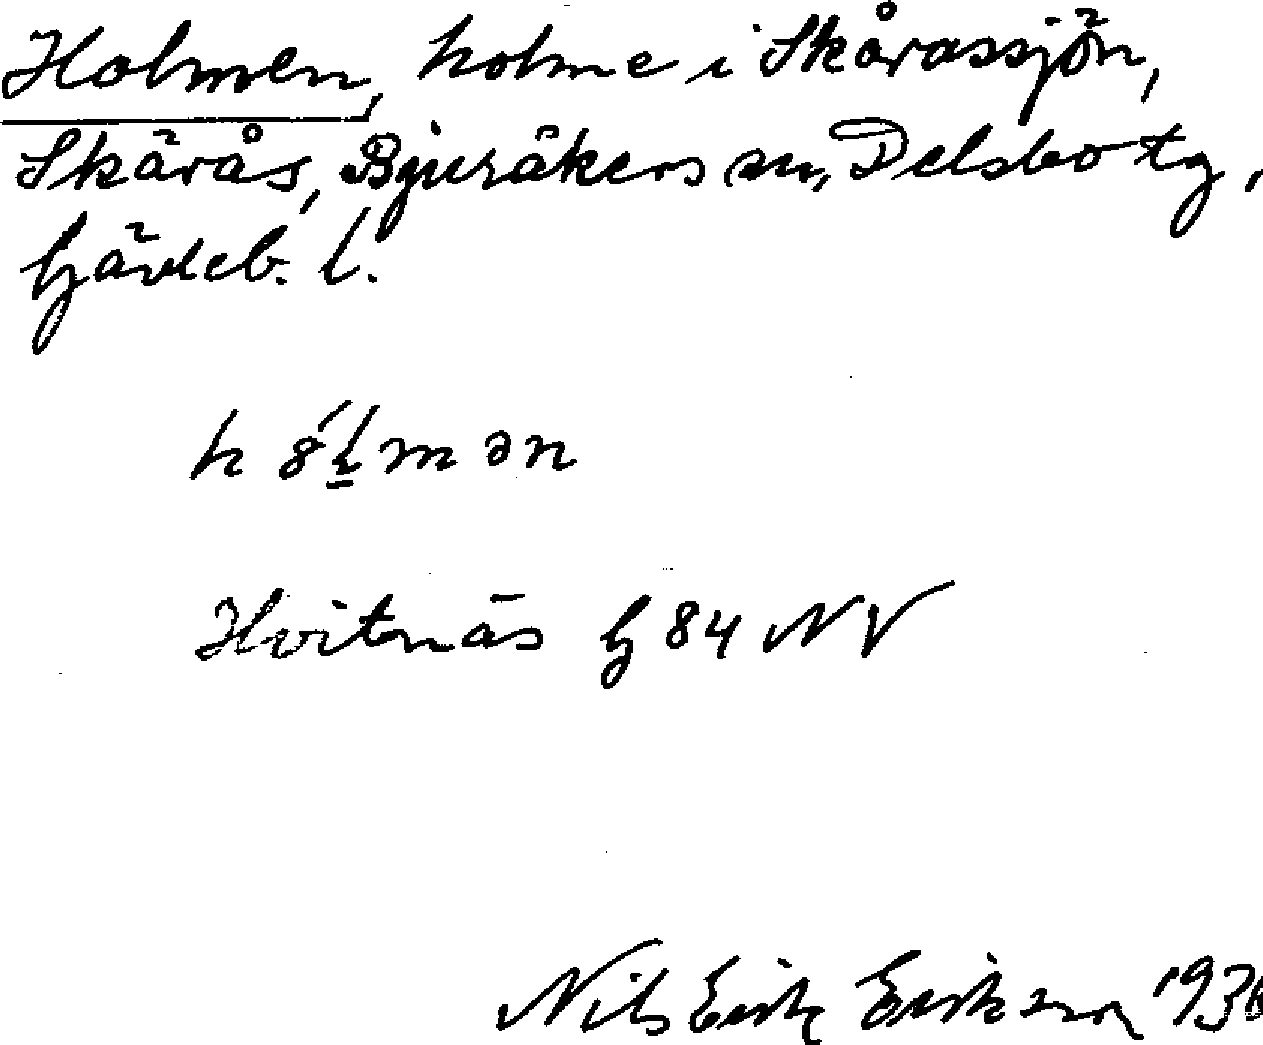 Holmen, holme i Skårassjön,
Skärås, Bjuråkers sn, Delsbo tg,
Gävleb. l.
h 8́lmən
Hvitnäs G 84 NV
Nils Erik Erikson 1936